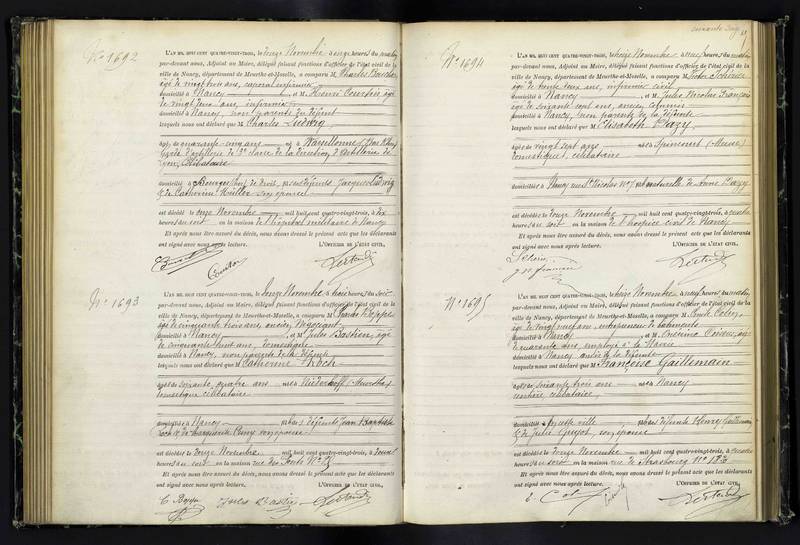 N° 1692
L'AN MIL HUIT CENT QUATRE-VINGT-TROIS, le Novembre à onze heures du matin
par-devant nous, Adjoint au Maire, délégué faisant fonctions d'officier de l'état civil de la
ville de Nancy, département de Meurthe-et-Moselle, a comparu M. Charles
âgé de vingt trois ans, caporal infirmier
domicilié à Nancy et M. Henri
de vingt deux ans, infirmier
domicilié à Nancy, non parents du défunt
lesquels nous ont déclaré que M. Charles Ludwig
âgé de quarante cinq ans né à Wasselonne (Bas Rhin)
Garde d'artillerie de 3e classe de la direction d'artillerie de
Lyon, célibataire
domicilié à Bourges fils de défunts Jacques Ludwig
& de Catherine son épouse
est décédé le onze Novembre mil huit cent quatre-vingt-trois, à dix
heures du soir en la maison de l'hôpital militaire de Nancy
Et après nous être assuré du décès, nous avons dressé le présent acte que les déclarants
ont signé avec nous après lecture. L'OFFICIER DE L'ÉTAT CIVIL,
N° 1693
L'AN MIL HUIT CENT QUATRE-VINGT-TROIS, le douze Novembre à trois heures du soir
par-devant nous, Adjoint au Maire, délégué faisant fonctions d'officier de l'état civil de la
ville de Nancy, département de Meurthe-et-Moselle, a comparu M. Charles
âgé de cinquante trois ans, ancien négociant
domicilié à Nancy et M. Jules Bastien, âgé
de cinquante huit ans, domestique
domicilié à Nancy, non parents de la défunte
lesquels nous ont déclaré que M. Catherine Koch
âgée de soixante quatre ans née à Niederhoff (Meurthe)
domestique célibataire
domiciliée à Nancy fille des défunts Jean Baptiste
Koch & de Marguerite son épouse
est décédée le douze Novembre mil huit cent quatre-vingt-trois, à
heures du soir en la maison rue des Ponts N°
Et après nous être assuré du décès, nous avons dressé le présent acte que les déclarants
ont signé avec nous après lecture. L'OFFICIER DE L'ÉTAT CIVIL,
Jules Bastien
N° 1694
L'AN MIL HUIT CENT QUATRE-VINGT-TROIS, le treize Novembre à neuf heures du matin
par-devant nous, Adjoint au Maire, délégué faisant fonctions d'officier de l'état civil de la
ville de Nancy, département de Meurthe-et-Moselle, a comparu M.
âgé de trente deux ans, infirmier civil
domicilié à Nancy et M. Jules Nicolas François
âgé de soixante cinq ans, ancien commis
domicilié à Nancy, non parents de la défunte
lesquels nous ont déclaré que M. Elisabeth Dazy
âgée de vingt sept ans née à Spincourt (Meuse)
domestique, célibataire
domiciliée à Nancy rue St Nicolas N° 7 fille naturelle de Anne Dazy
est décédée le douze Novembre mil huit cent quatre-vingt-trois, à quatre
heures du soir en la maison de l'hospice civil de Nancy
Et après nous être assuré du décès, nous avons dressé le présent acte que les déclarants
ont signé avec nous après lecture. L'OFFICIER DE L'ÉTAT CIVIL,
N° 1695
L'AN MIL HUIT CENT QUATRE-VINGT-TROIS, le treize Novembre à neuf heures du matin,
par-devant nous, Adjoint au Maire, délégué faisant fonctions d'officier de l'état civil de la
ville de Nancy, département de Meurthe-et-Moselle, a comparu M. Emile Colin,
âgé de vingt neuf ans, entrepreneur de bâtiments
domicilié à Nancy et M. âgé
de quarante ans, employé à la Mairie
domicilié à Nancy amis de la défunte
lesquels nous ont déclaré que M. Françoise Gaillemain
âgée de soixante trois ans née à Nancy
rentière, célibataire
domiciliée à ville fille des défunts Henry Gaillemain
& de Julie Guyot, son épouse
est décédée le douze Novembre mil huit cent quatre-vingt-trois, à
heures du soir en la maison rue de Strasbourg N°
Et après nous être assuré du décès, nous avons dressé le présent acte que les déclarants
ont signé avec nous après lecture. L'OFFICIER DE L'ÉTAT CIVIL,